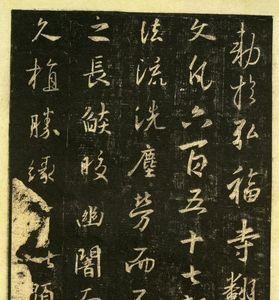 勅於弘福寺翻
文凡六百五十七
法流洗塵勞而不
之長焰皎幽闇而
久植勝緣以顯